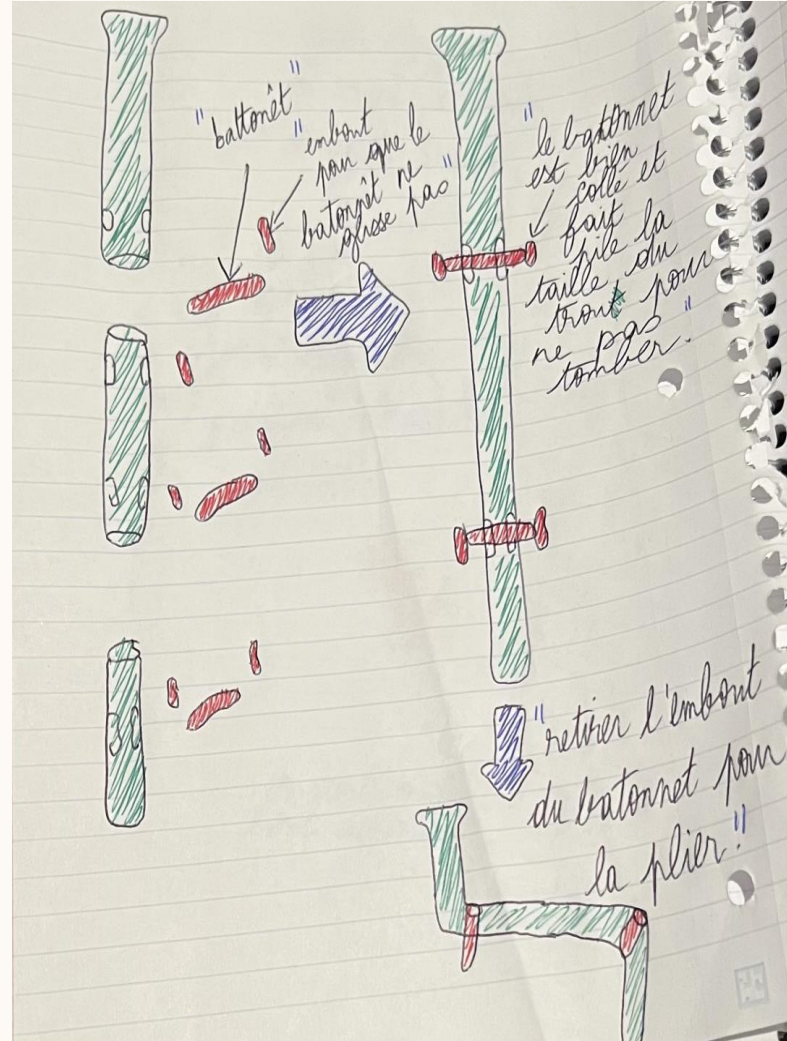 "battonêt"
"embout
pour que le
batonnêt ne
glisse pas"
"le batonnet
est bien
collé et
fait
pile la
taille du
trou pour
ne pas
tomber."
"retirer l'embout
du batonnet pour
la plier."